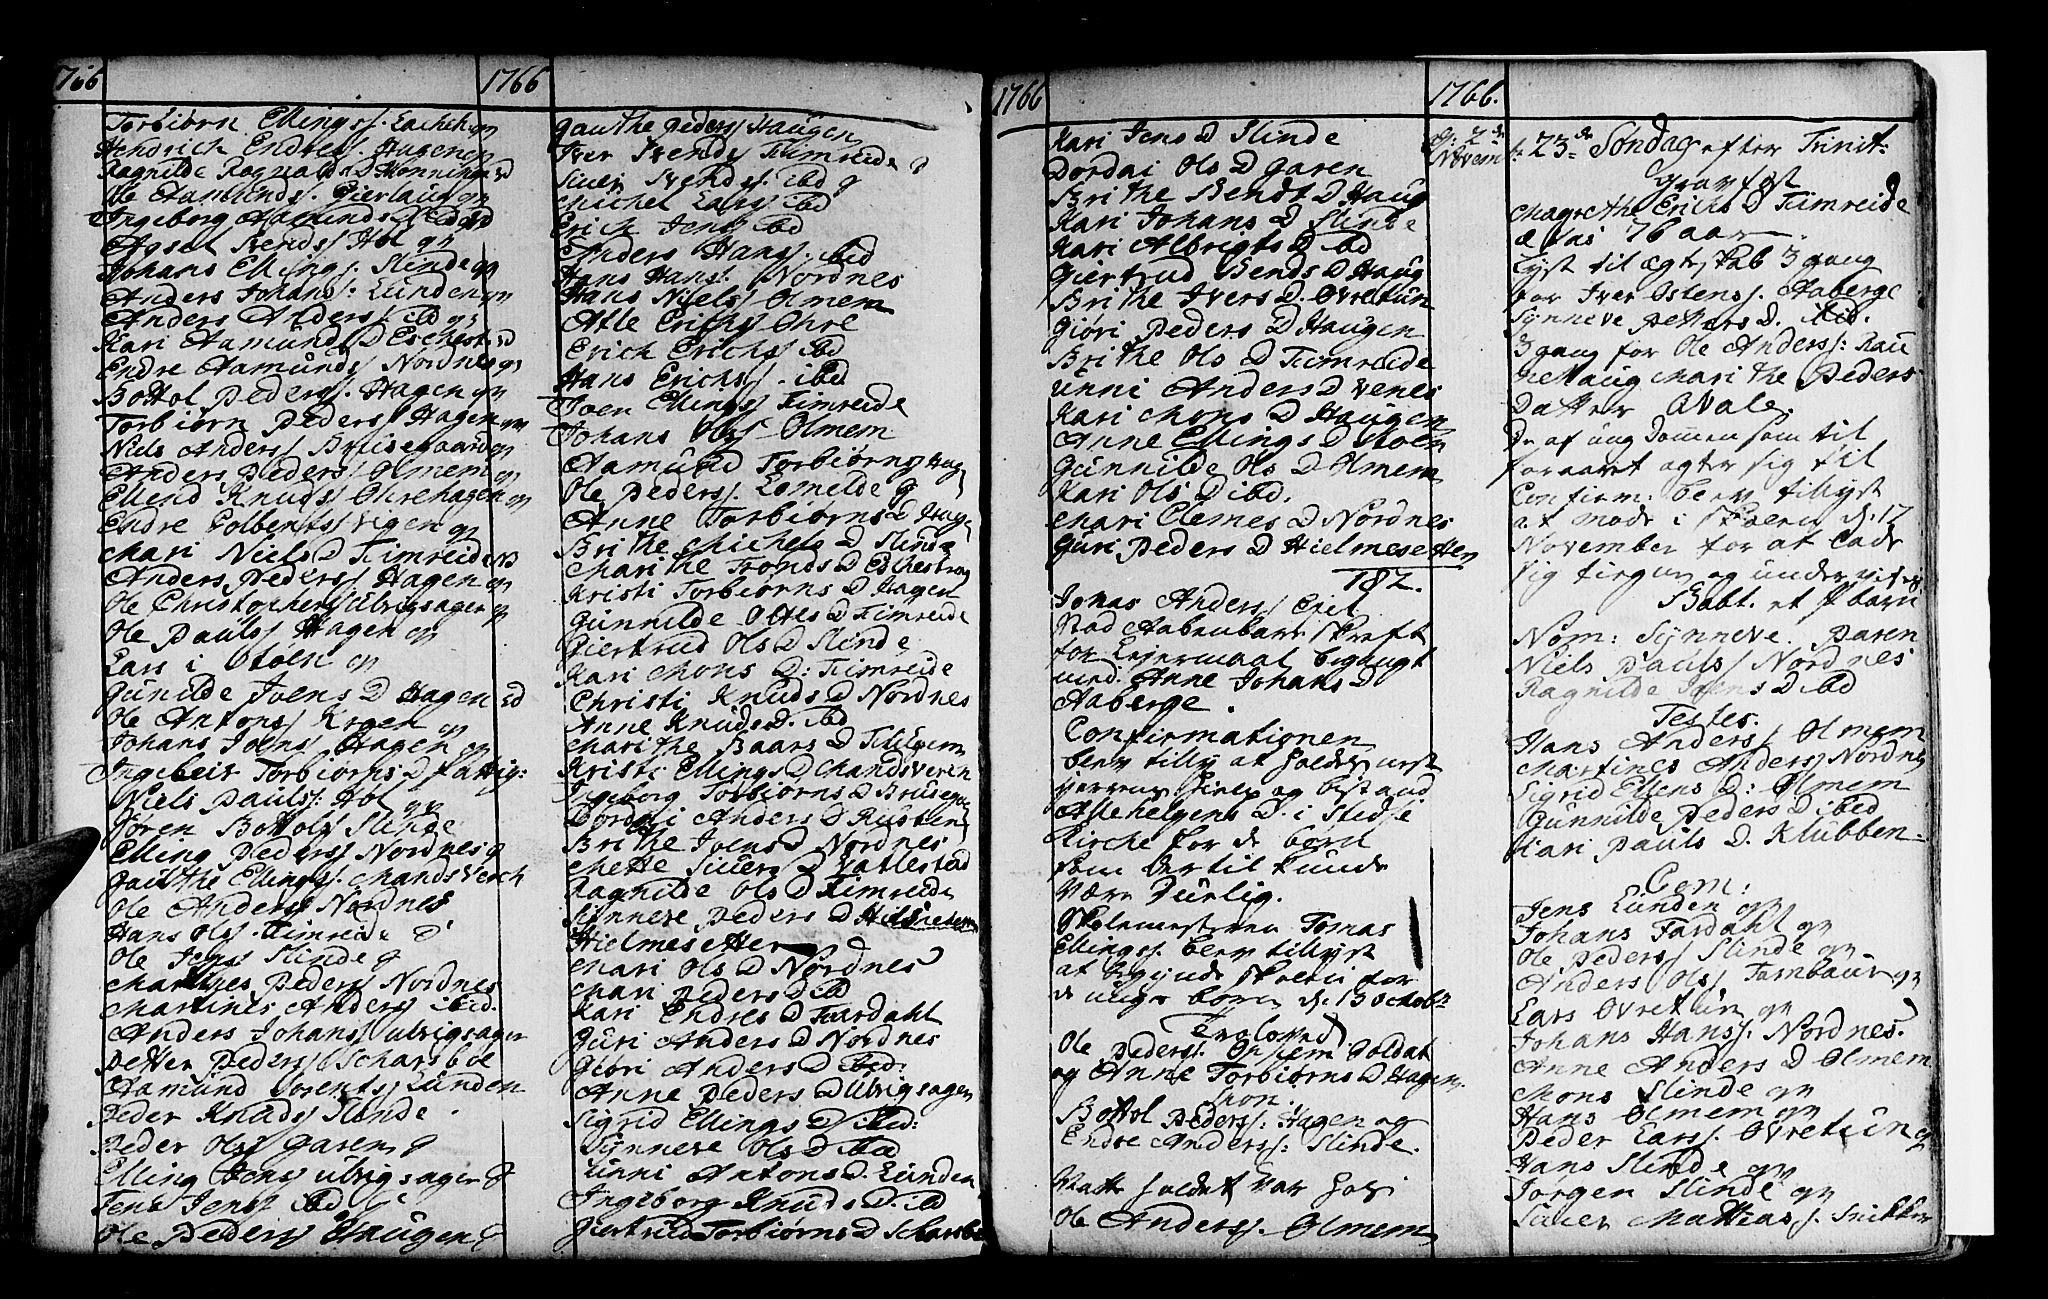 1766
Torbiørn Ellings/.
Hendrich Endres/. Hagen qv
Ragnilde Ragnalds D Hønninge
Ole Aamunds/.
Ingeborg Aamunds D ibid
Axsel Svends/ Hol qv
Johans Ellings/. Slinde qv
Anders Johans/: Lunden qv
Anders Anders/ ibd qv
Kari Aamunds D
Endre Aamunds/ Nordnes qv
Bottol Peders/. Hagen qv
Torbiørn Peders/ Hagen qv
Niels Anders/ Brusegaard qv
Anders Peders/ Olmem qv
Ellend Knuds/ Ohrehagen qv
Endre Colbents/ Vigen qv
Mari Niels D Fimreide
Anders Peders/ Hagen qv
Ole Christophers/ Ulvigsager qv
Ole Pauls/ Hagen qv
Lars i Støen qv
Gunilde Joens D Hagen
Ole Antons/ Krgen qv
Johans Joens/ Hagen qv
Ingebeir Torbiørns D fattig:
Niels Pauls/: Hol qv
Jøren Bottols/ Slinde
Elling Peders/ Nordnes
Gauthe Ellings/. Mandsverch
Ole Anders/ Nordnes
Hans Ols/. Fimreide
Ole Jens/ Slinde
Marthes Peders/ Nordnes
Martines Anders/ ibid.
Anders Johans/ ulvigsager
Petter Peders/ Scharsbøe
Aamund Lorents/ Lunden
Peder Knuds/ Slinde.
Peder Ols/ Garen
Elling Jens/ ulvigsager
Jens Jens/ ibd
Ole Peders/ Haugen
1766
Gauthe Peders/ Haugen
Iver Svends/ Fimreide
Siuer Svends/. ibd
Michel Lars/ ibd
Erich Jens/ ibd
Anders Hans/: ibid
Hans Hans/: Nordnes
Hans Niels/ Olmem
Atle Erichs/ Ohre
Erich Erichs/ ibd
Hans Erichs/. ibd
Joen Ellings/ Fimreide
Johans Ols/ Olmem
Aamund Torbiørns/ Hag
Ole Peders/. Lomelde
Anne Torbiørns D Hag
Brithe Michels D Slinde
Marithe Tronds D
Kristi Torbiørns D Hagen
Gunnilde D Fimreide
Giertrud Ols D Slinde
Kari Mons D: Fimreide
Christi Knuds D Nordnes
Anne Knuds D. ibd
Marithe Baars D
Kristi Ellings D Mandsveren
Ingeborg Torbiørns D Brusegaa
Dordai Anders D
Brithe Joens D Nordnes
Mette Siuers D Vattestad
Ragnilde Ols D Fimreide
Synneve Peders D
Hielmesetter
Mari Ols D Nordnes
Mari Peders D ibd
Kari Endres D Fardahl
Guri Anders D Nordnes
Giøri Anders D ibid:
Anne Peders D Ulvigsager
Sigrid Ellings D ibid:
Synneve Ols D ibd
Unni Antons D. Lunden
Ingeborg Knuds D. ibd
Giertrud Torbiørns D Scharsbø
1766
Kari Jens D Slinde
Dordai Ols D garen
Brithe Bendt D Haug
Kari Johans D Slinde
Kari Albrigts D ibd
Giertrud Bends D Haug
Brithe Ivers D. Ovretun
Giøri Peders D Haugen
Brithe Ols D Fimreide
Unni Anders D Venes
Kari Mons D Haugen
Anne Ellings D Støen
Gunnilde Ols D Olmem
Kari Ols D ibd.
Mari Clemes D Nordnes
Guri Peders D Hielmesetter
182.
Jonas Anders/
stod Aabenbare skrift
for Leiermaal begaaet
med. Anne Johans D
Aaberge.
Confirmationen
blev tilly at holdes
herrens hielp og bistand
Allehelgens D. i Stedje
Kirche for de børn
som dertil kunde
være Duelig.
Skolemesteren Tomas
Ellings/. blev tillyst
at begynde skolen for
de unge børn d. 13 octobr
Troloved
Ole Peders/. Opsem Soldat
og Anne Torbiørns D Hagen.
Spon.
Bottol Peders/: Hagen og
Endre Anders/: Slinde.
holdet var hos
Ole Anders/. Olmem
1766.
d: 2
Novemb: 23de Søndag efter Trinit:
Grav fæst
Magrethe Erichs D Fimreide
ætas 76 aar.
Lyst til ægteskab 3 gang
for Iver Ostens/. Aaberge
Synneve Petters D. ibid.
3 gang for Ole Anders/: Rau
helaug Marithe Peders
Datter Qvale.
De af ungdommen som til
foraaret agter sig til
Confirm: blev tillyst
at møde i skolen d. 17
November for at lade
sig
Babt. et barn
Nom: Synneve. Paren
Niels Pauls/ Nordnes
Ragnilde Joens D ibd
Testes.
Hans Anders/ Olmem
Martines Anders/ Nordnes
Sigrid Ellens D: Olmem
Gunnilde Peders D ibid
Kari Pauls D. Klubben.
Com:
Jens Lunden qv
Johans Fardahl qv
Ole Peders/ Slinde qv
Anders Ols/ qv
Lars Ovretun qv
Johans Hans/. Nordnes.
Anne Anders D Olmem
Mons Slinde qv
Hans Olmem qv
Peder Lars/. Ovretun qv
Hans Slinde qv
Jørgen Slinde qv
Siuer Mattias/. Snikker